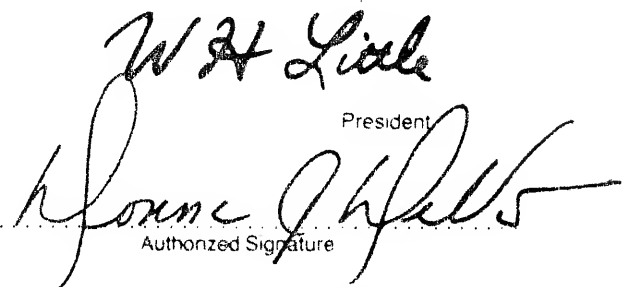 W H Little
President
Donna J Webb
Authorized Signature